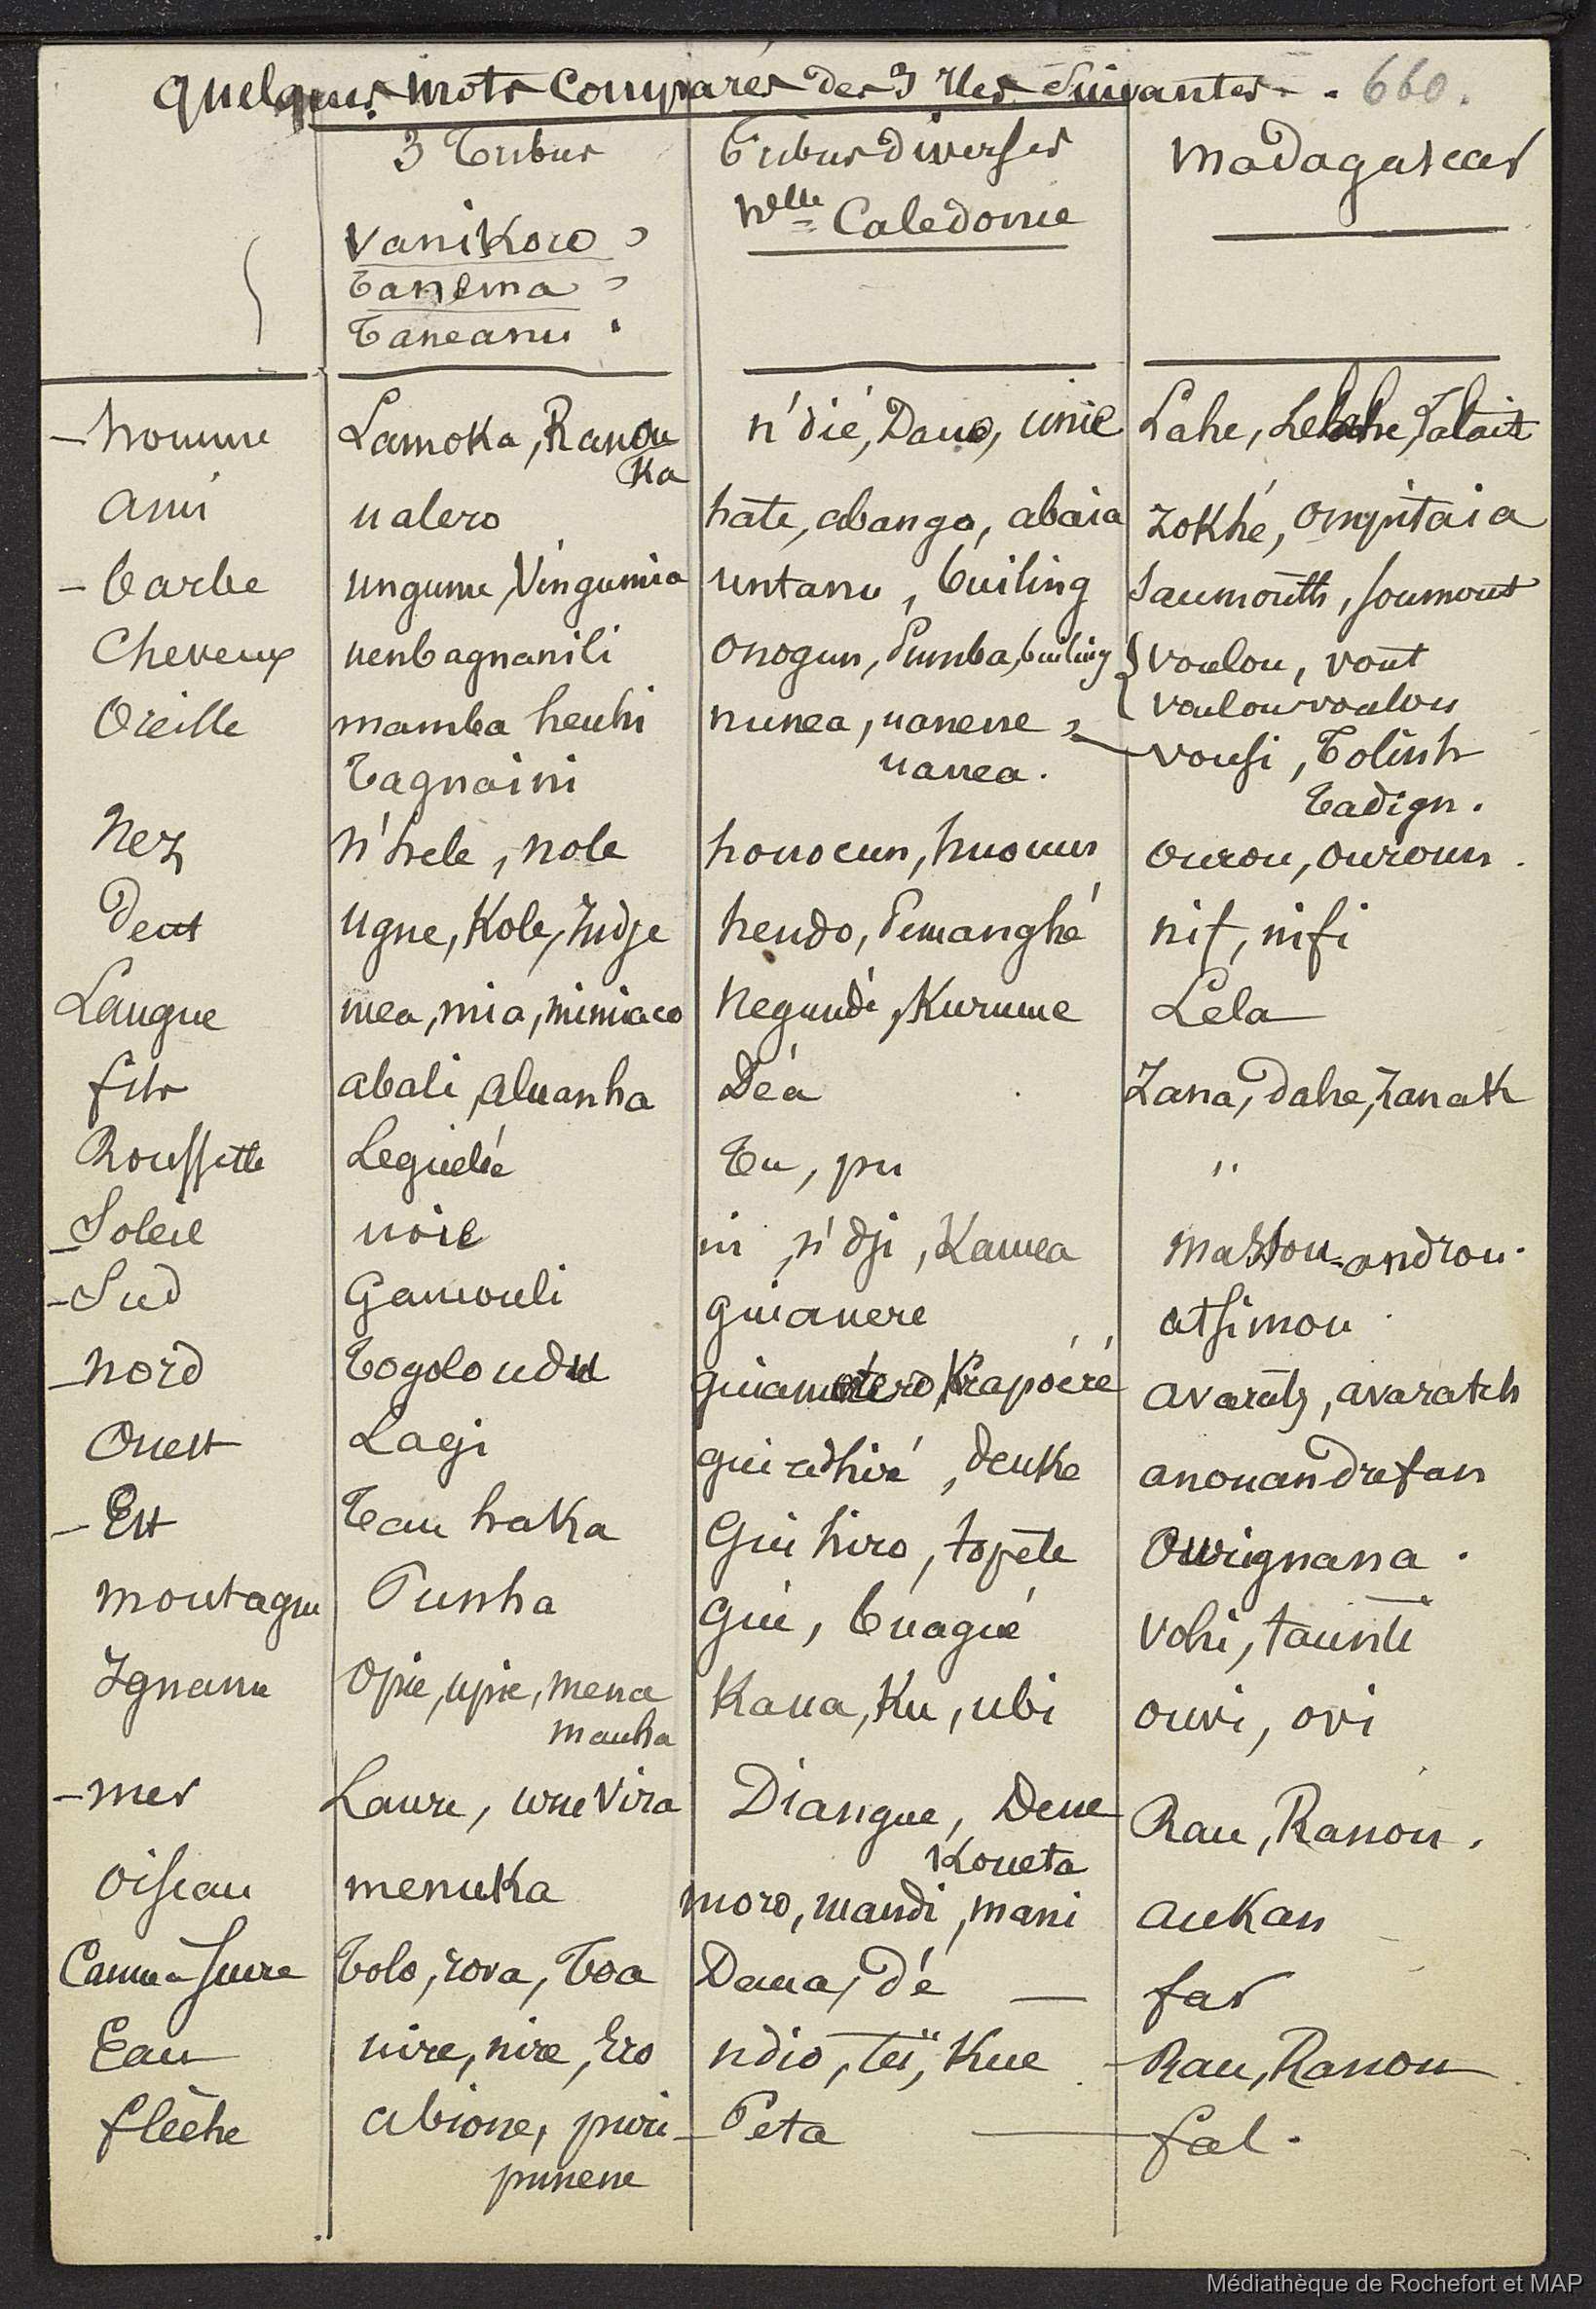 quelques mots comparés des 3 Iles Suivantes - 660.
3 Tribus Tribus diverses Madagascar
Vanikoro Nelle Caledonie
Tanema
Taneanu
homme Lamoka, Ranou n'dié, Dano, unie Lahe, Lelahe, Talait
Ka
ami ualero hate, abanga, abaia zokhé, ompitaia
barbe ungumu, Vingumia untanu, builing Saumoutts, soumout
Cheveux uenbagnanili onogun, Pumba, builing voulou, vout
voulouvoulou
Oreille mamba heuhi nunea, uanene vousi, Tolinh
Tagnaini uanea. Tadign.
Nez n'hele, nole honocun, huoun ourou, ouroun.
Dent ugne, Kole, Indje hendo, Pemanghé nif, nifi
Langue mea, mia, mimiaco Negundi, Kurume Lela
fils abali, aluanha Déa Zana, Dahe, Zanak
Roussette Leguelée Tu, pu "
Soleil uoie ni, n'dji, Kamea massou-androu.
Sud Gamouli guianere atsimou
nord Togoloudu Krapoéré avarats, avaratch
Ouest Lagi guiedhiré, Deuke anouandrefan
Est Tau haka Gui hiro, topète Ouignana.
montagne Punha Gué, buagué Vohi, taunti
Ignanu Opie, upie, mena Kaua, Ku, ubi ouvi, ovi
manha
mer Laure, une Vira Diangue, Dene Rau, Ranou.
Koueta
oiseau menuka moro, mandi, mani aukan
Canne a sucre Tolo, rova, Toa Daua, Dé far
Eau nire, nire, Ero ndio, Teï, Kue Rau, Ranou
flèche abione, puri Peta fal.
punene
Médiathèque de Rochefort et MAP